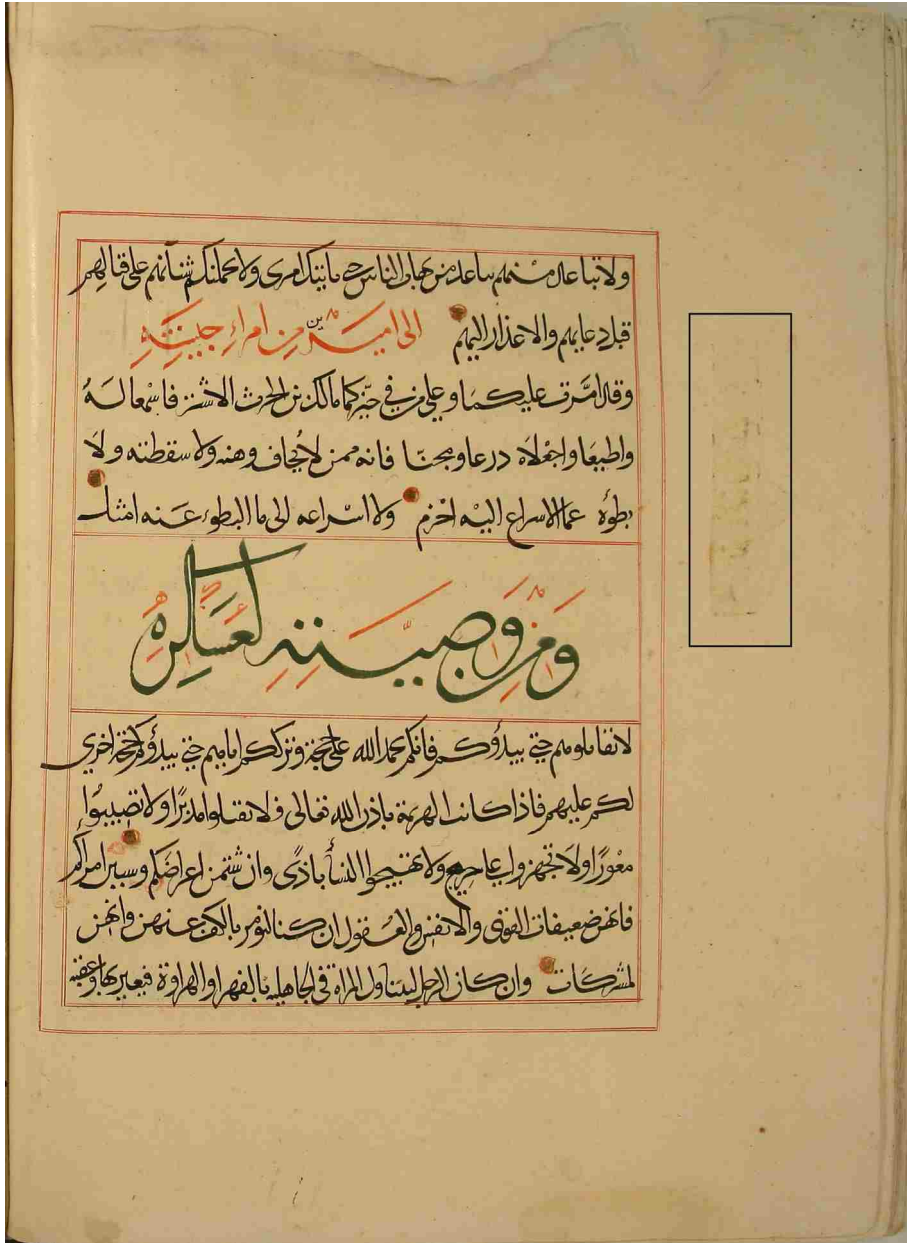 ولا تباعد منهم تباعد من يهاب الناس حتى ياتيك امرى ولا يحملنكم شنآنهم على قتالهم
قبل دعايهم والاعذار اليهم الى اميرين من امراء جيشه
وقد امرت عليكما وعلى من في حيزكما مالك بن الحرث الاشتر فاسمعا له
واطيعا واجعلاه درعا ومجنا فانه ممن لا يخاف وهنه ولا سقطته ولا
بطؤه عما الاسراع اليه احزم ولا اسراعه الى ما البطوء عنه امثل
ومن وصيته لعساكره
لا تقاتلوهم حتى يبدؤكم فانكم بحمد الله على حجة وترككم اياهم حتى يبدؤكم حجة اخرى
لكم عليهم فاذا كانت الهزيمة باذن الله تعالى فلا تقتلوا مدبرًا ولا تصيبوا
معورًا ولا تجهزوا على جريح ولا تهيجوا النسأ باذًى وان شتمن اعراضكم وسببن امراكم
فانهن ضعيفات القوى والانفس والعقول ان كنا لنومر بالكف عنهن وانهن
لمشركات وان كان الرجل ليتناول المراة في الجاهلية بالفهر او الهراوة فيعير بها وعقبه